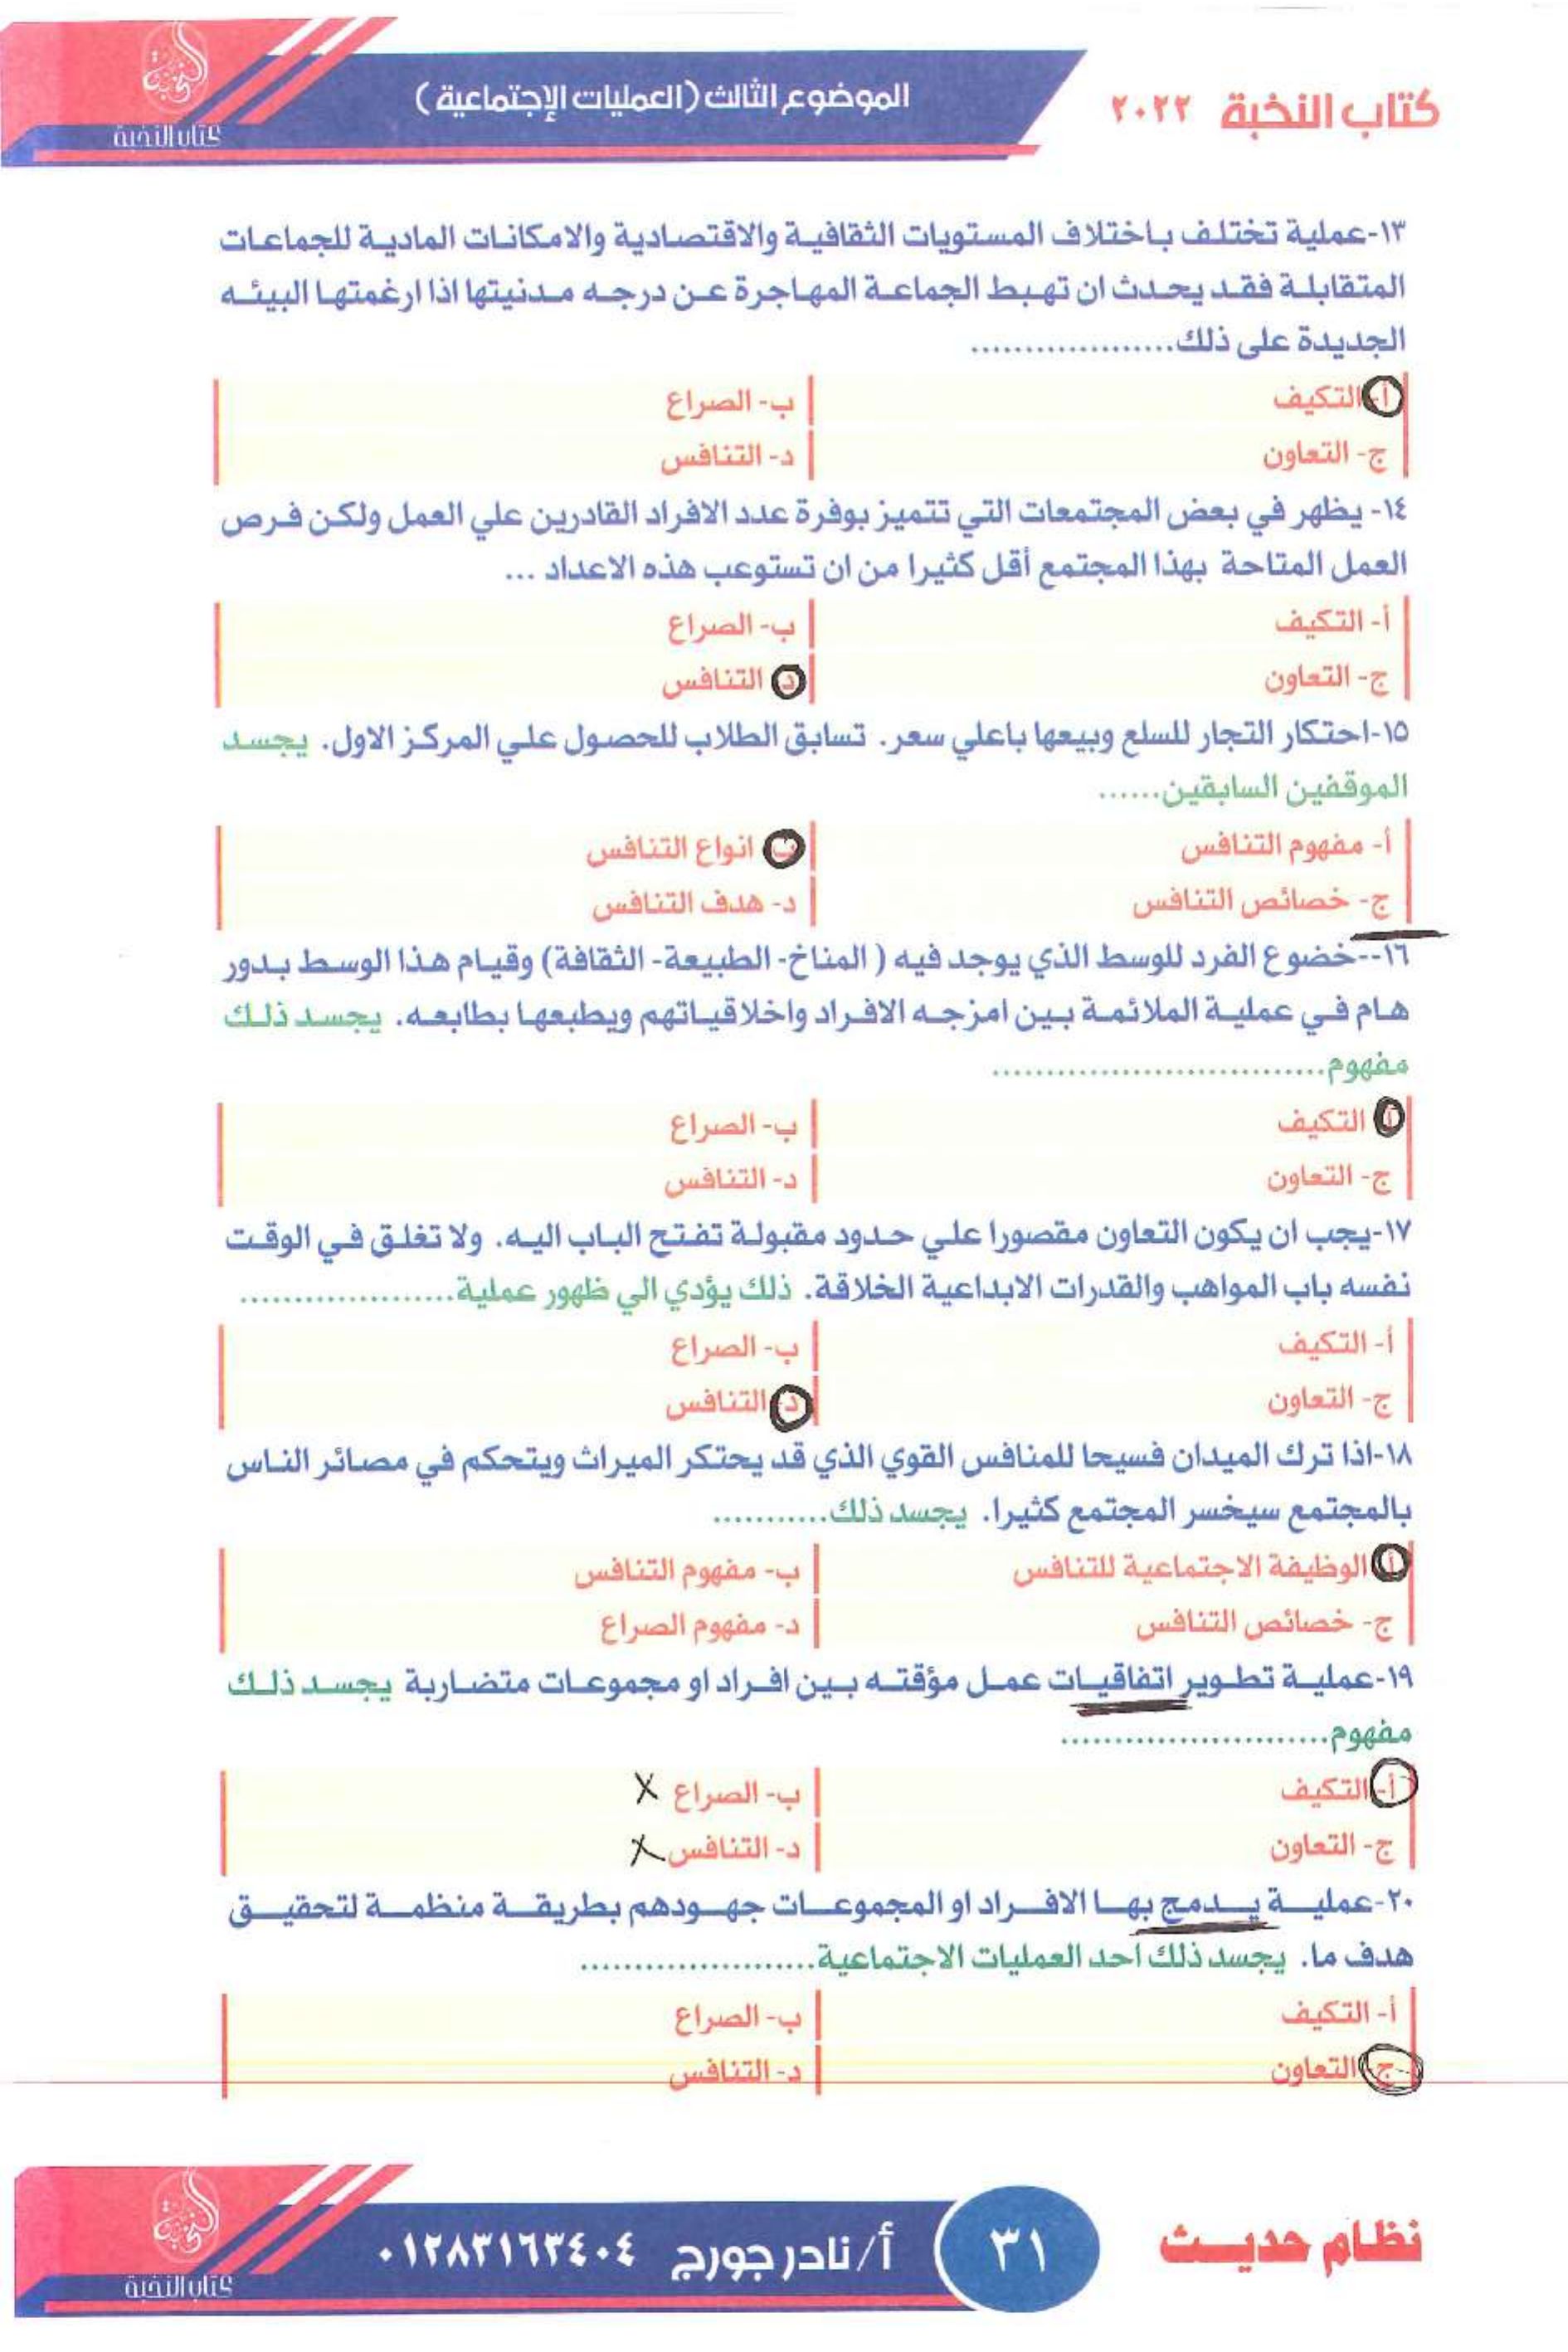 كتاب النخبة ٢٠٢٢
الموضوع الثالث (العمليات الإجتماعية)
كتاب النخبة
١٣-عملية تختلف باختلاف المستويات الثقافية والاقتصادية والامكانات المادية للجماعات
المتقابلة فقد يحدث ان تهبط الجماعة المهاجرة عن درجه مدنيتها اذا ارغمتها البيئه
الجديدة على ذلك...................
أ- التكيف
ب- الصراع
ج- التعاون
د- التنافس
١٤- يظهر في بعض المجتمعات التي تتميز بوفرة عدد الافراد القادرين علي العمل ولكن فرص
العمل المتاحة بهذا المجتمع أقل كثيرا من ان تستوعب هذه الاعداد ...
أ- التكيف
ب- الصراع
ج- التعاون
د التنافس
١٥-احتكار التجار للسلع وبيعها باعلي سعر. تسابق الطلاب للحصول علي المركز الاول. يجسد
الموقفين السابقين......
أ- مفهوم التنافس
ب انواع التنافس
ج- خصائص التنافس
د- هدف التنافس
١٦--خضوع الفرد للوسط الذي يوجد فيه ( المناخ- الطبيعة- الثقافة) وقيام هذا الوسط بدور
هام في عملية الملائمة بين امزجه الافراد واخلاقياتهم ويطبعها بطابعه. يجسد ذلك
مفهوم...............................
أ التكيف
ب- الصراع
ج- التعاون
د- التنافس
١٧-يجب ان يكون التعاون مقصورا علي حدود مقبولة تفتح الباب اليه. ولا تغلق في الوقت
نفسه باب المواهب والقدرات الابداعية الخلاقة. ذلك يؤدي الي ظهور عملية....................
أ- التكيف
ب- الصراع
ج- التعاون
د- التنافس
١٨-اذا ترك الميدان فسيحا للمنافس القوي الذي قد يحتكر الميراث ويتحكم في مصائر الناس
بالمجتمع سيخسر المجتمع كثيرا. يجسد ذلك...........
أ الوظيفة الاجتماعية للتنافس
ب- مفهوم التنافس
ج- خصائص التنافس
د- مفهوم الصراع
١٩-عملية تطوير اتفاقيات عمل مؤقته بين افراد او مجموعات متضاربة يجسد ذلك
مفهوم.........................
أ- التكيف
ب- الصراع X
ج- التعاون
د- التنافس X
٢٠-عملية يدمج بها الافراد او المجموعات جهودهم بطريقة منظمة لتحقيق
هدف ما. يجسد ذلك احد العمليات الاجتماعية......................
أ- التكيف
ب- الصراع
ج- التعاون
د- التنافس
نظام حديث
٣١
أ/ نادر جورج ٠١٢٨٣١٦٣٤٠٤
كتاب النخبة